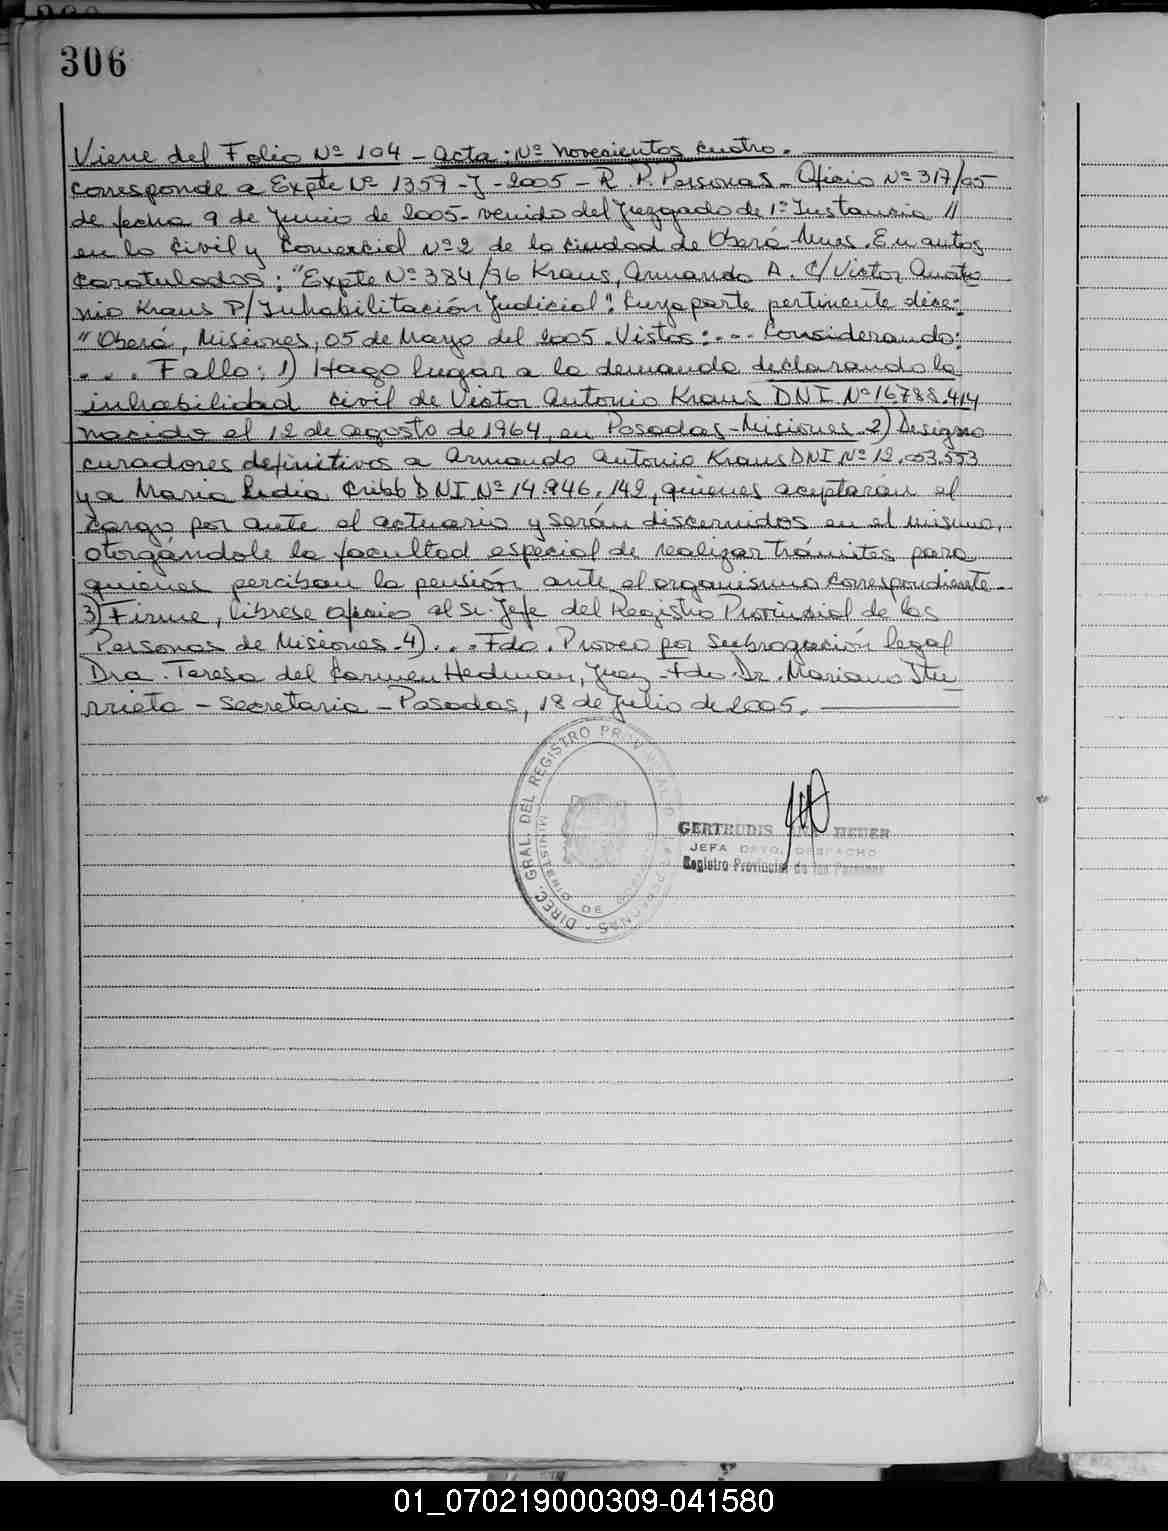 306
Viene del Folio Nº 104 - acta: Nº novecientos cuatro.
corresponde a Expte Nº 1359 - J - 2005 - R. P. Personas - Oficio Nº 317/05
de fecha 9 de Junio de 2005 - venido del Juzgado de 1º Instancia //
en lo Civil y Comercial Nº 2 de la ciudad de Oberá Mnes. En autos
caratulados: "Expte Nº 384/96 Kraus, Armando A. C/ Victor Anto
nio Kraus P/ Inhabilitación Judicial": Cuya parte pertinente dice:
"Oberá, Misiones, 05 de Mayo del 2005. Vistos: ... Considerando:
.... Fallo: 1) Hago lugar a la demanda declarando la
inhabilidad civil de Victor Antonio Kraus DNI Nº 16.788.414
nacido el 12 de agosto de 1964, en Posadas - Misiones. 2) Designo
curadores definitivos a Armando Antonio Kraus DNI Nº 12..553
y a Maria Lidia Cribb DNI Nº 14.946.142, quienes aceptarán el
cargo por ante el actuario y serán discernidos en el mismo,
otorgándole la facultad especial de realizar trámites para
quienes perciban la pensión ante el organismo correspondiente.
3) Firme, librese oficio al Sr. Jefe del Registro Provincial de las
Personas de Misiones. 4) ... Fdo. Proveo por subrogación legal
Dra. Teresa del Carmen Hedman, Juez - Fdo. Dr. Mariano Itu
rrieta - Secretaria - Posadas, 18 de Julio de 2005.
DIREC. GRAL. DEL REGISTRO PROVINCIAL DE LAS PERSONAS
MINISTERIO DE GOBIERNO
GERTRUDIS HEUER
JEFA DPTO. DESPACHO
Registro Provincial de las Personas
01_070219000309-041580